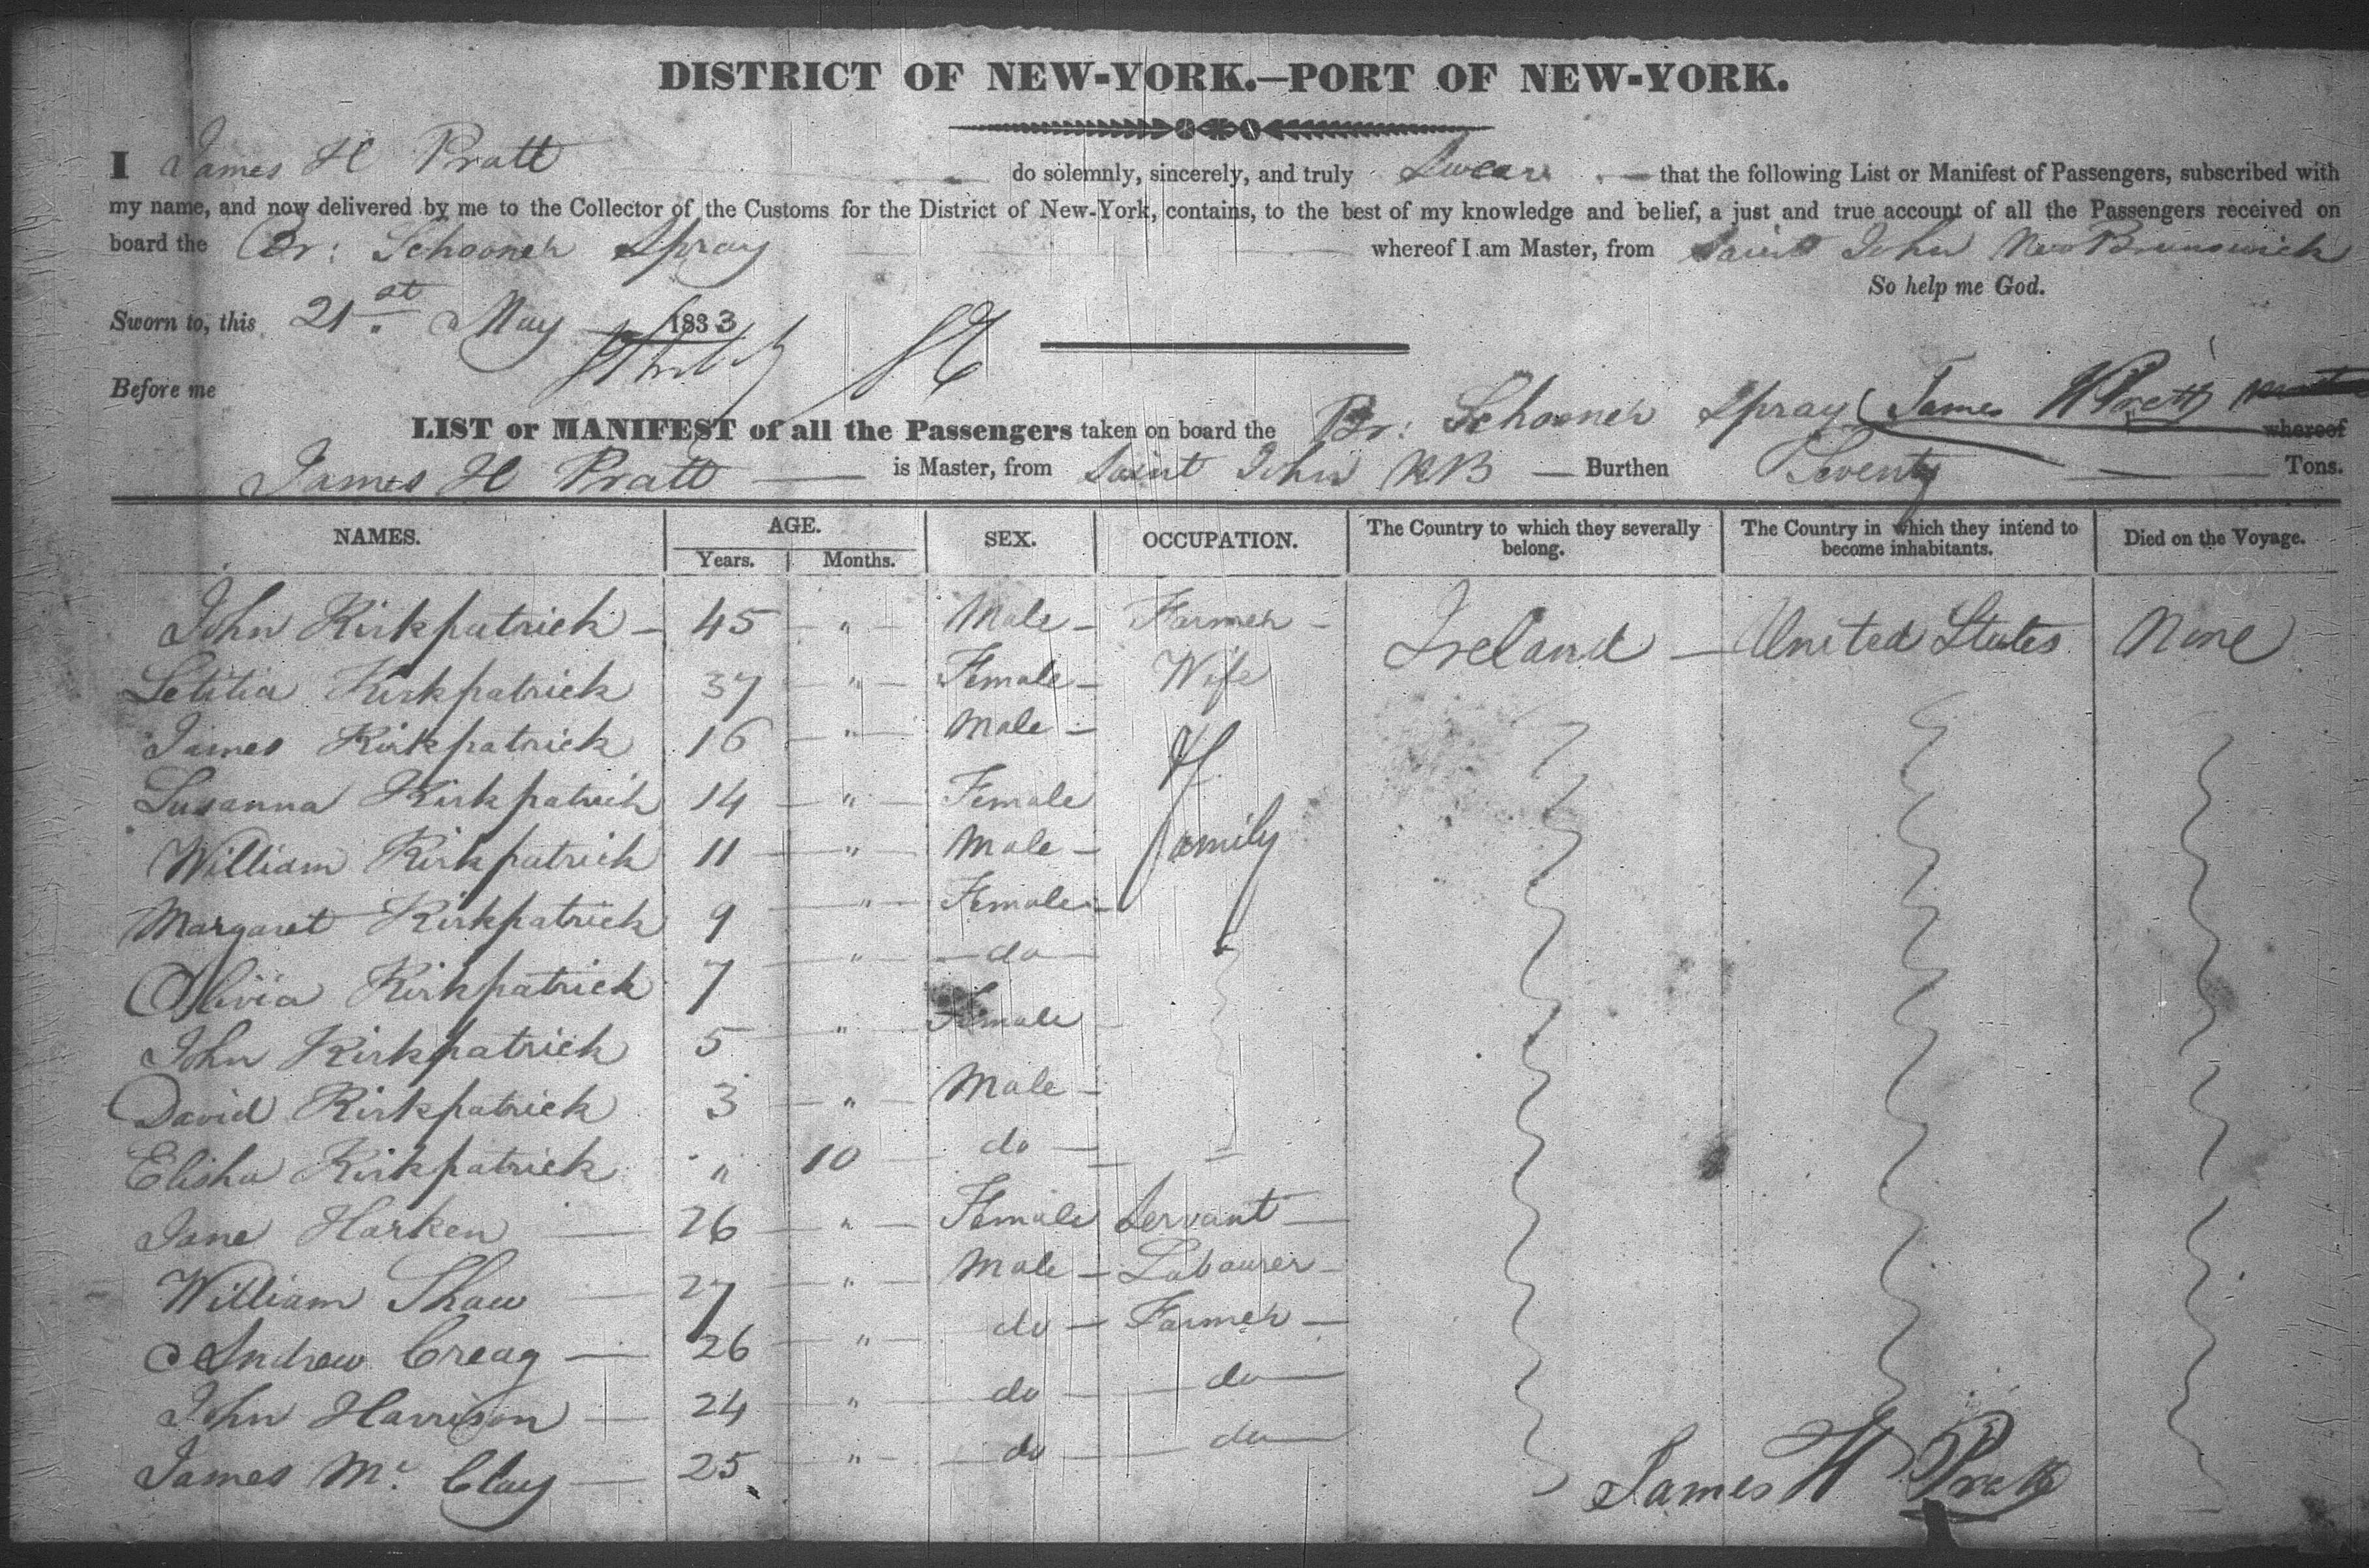 DISTRICT OF NEW-YORK.—PORT OF NEW-YORK.
I James H Pratt do solemnly, sincerely, and truly Swear that the following List or Manifest of Passengers, subscribed with
my name, and now delivered by me to the Collector of the Customs for the District of New-York, contains, to the best of my knowledge and belief, a just and true account of all the Passengers received on
board the Br: Schooner Spray whereof I am Master, from Saint John New Brunswick
So help me God.
Sworn to, this 21st May 1833
Before me
LIST or MANIFEST of all the Passengers taken on board the Br: Schooner Spray (James H Pratt whereof
James H Pratt is Master, from Saint John NB Burthen Seventy Tons.
NAMES. AGE. Years. Months. SEX. OCCUPATION. The Country to which they severally belong. The Country in which they intend to become inhabitants. Died on the Voyage.
John Kirkpatrick 45 " Male Farmer Ireland United States None
Letitia Kirkpatrick 37 " Female Wife
James Kirkpatrick 16 " Male
Susanna Kirkpatrick 14 " Female
William Kirkpatrick 11 " Male family
Margaret Kirkpatrick 9 " Female
Olivia Kirkpatrick 7 " do
John Kirkpatrick 5 " Female
David Kirkpatrick 3 " Male
Elisha Kirkpatrick " 10 do
Jane Harken 26 " Female Servant
William Shaw 27 " Male Labourer
Andrew Creag 26 " do Farmer
John Harrison 24 " do do
James Mc Clay 25 " do do
James H Pratt